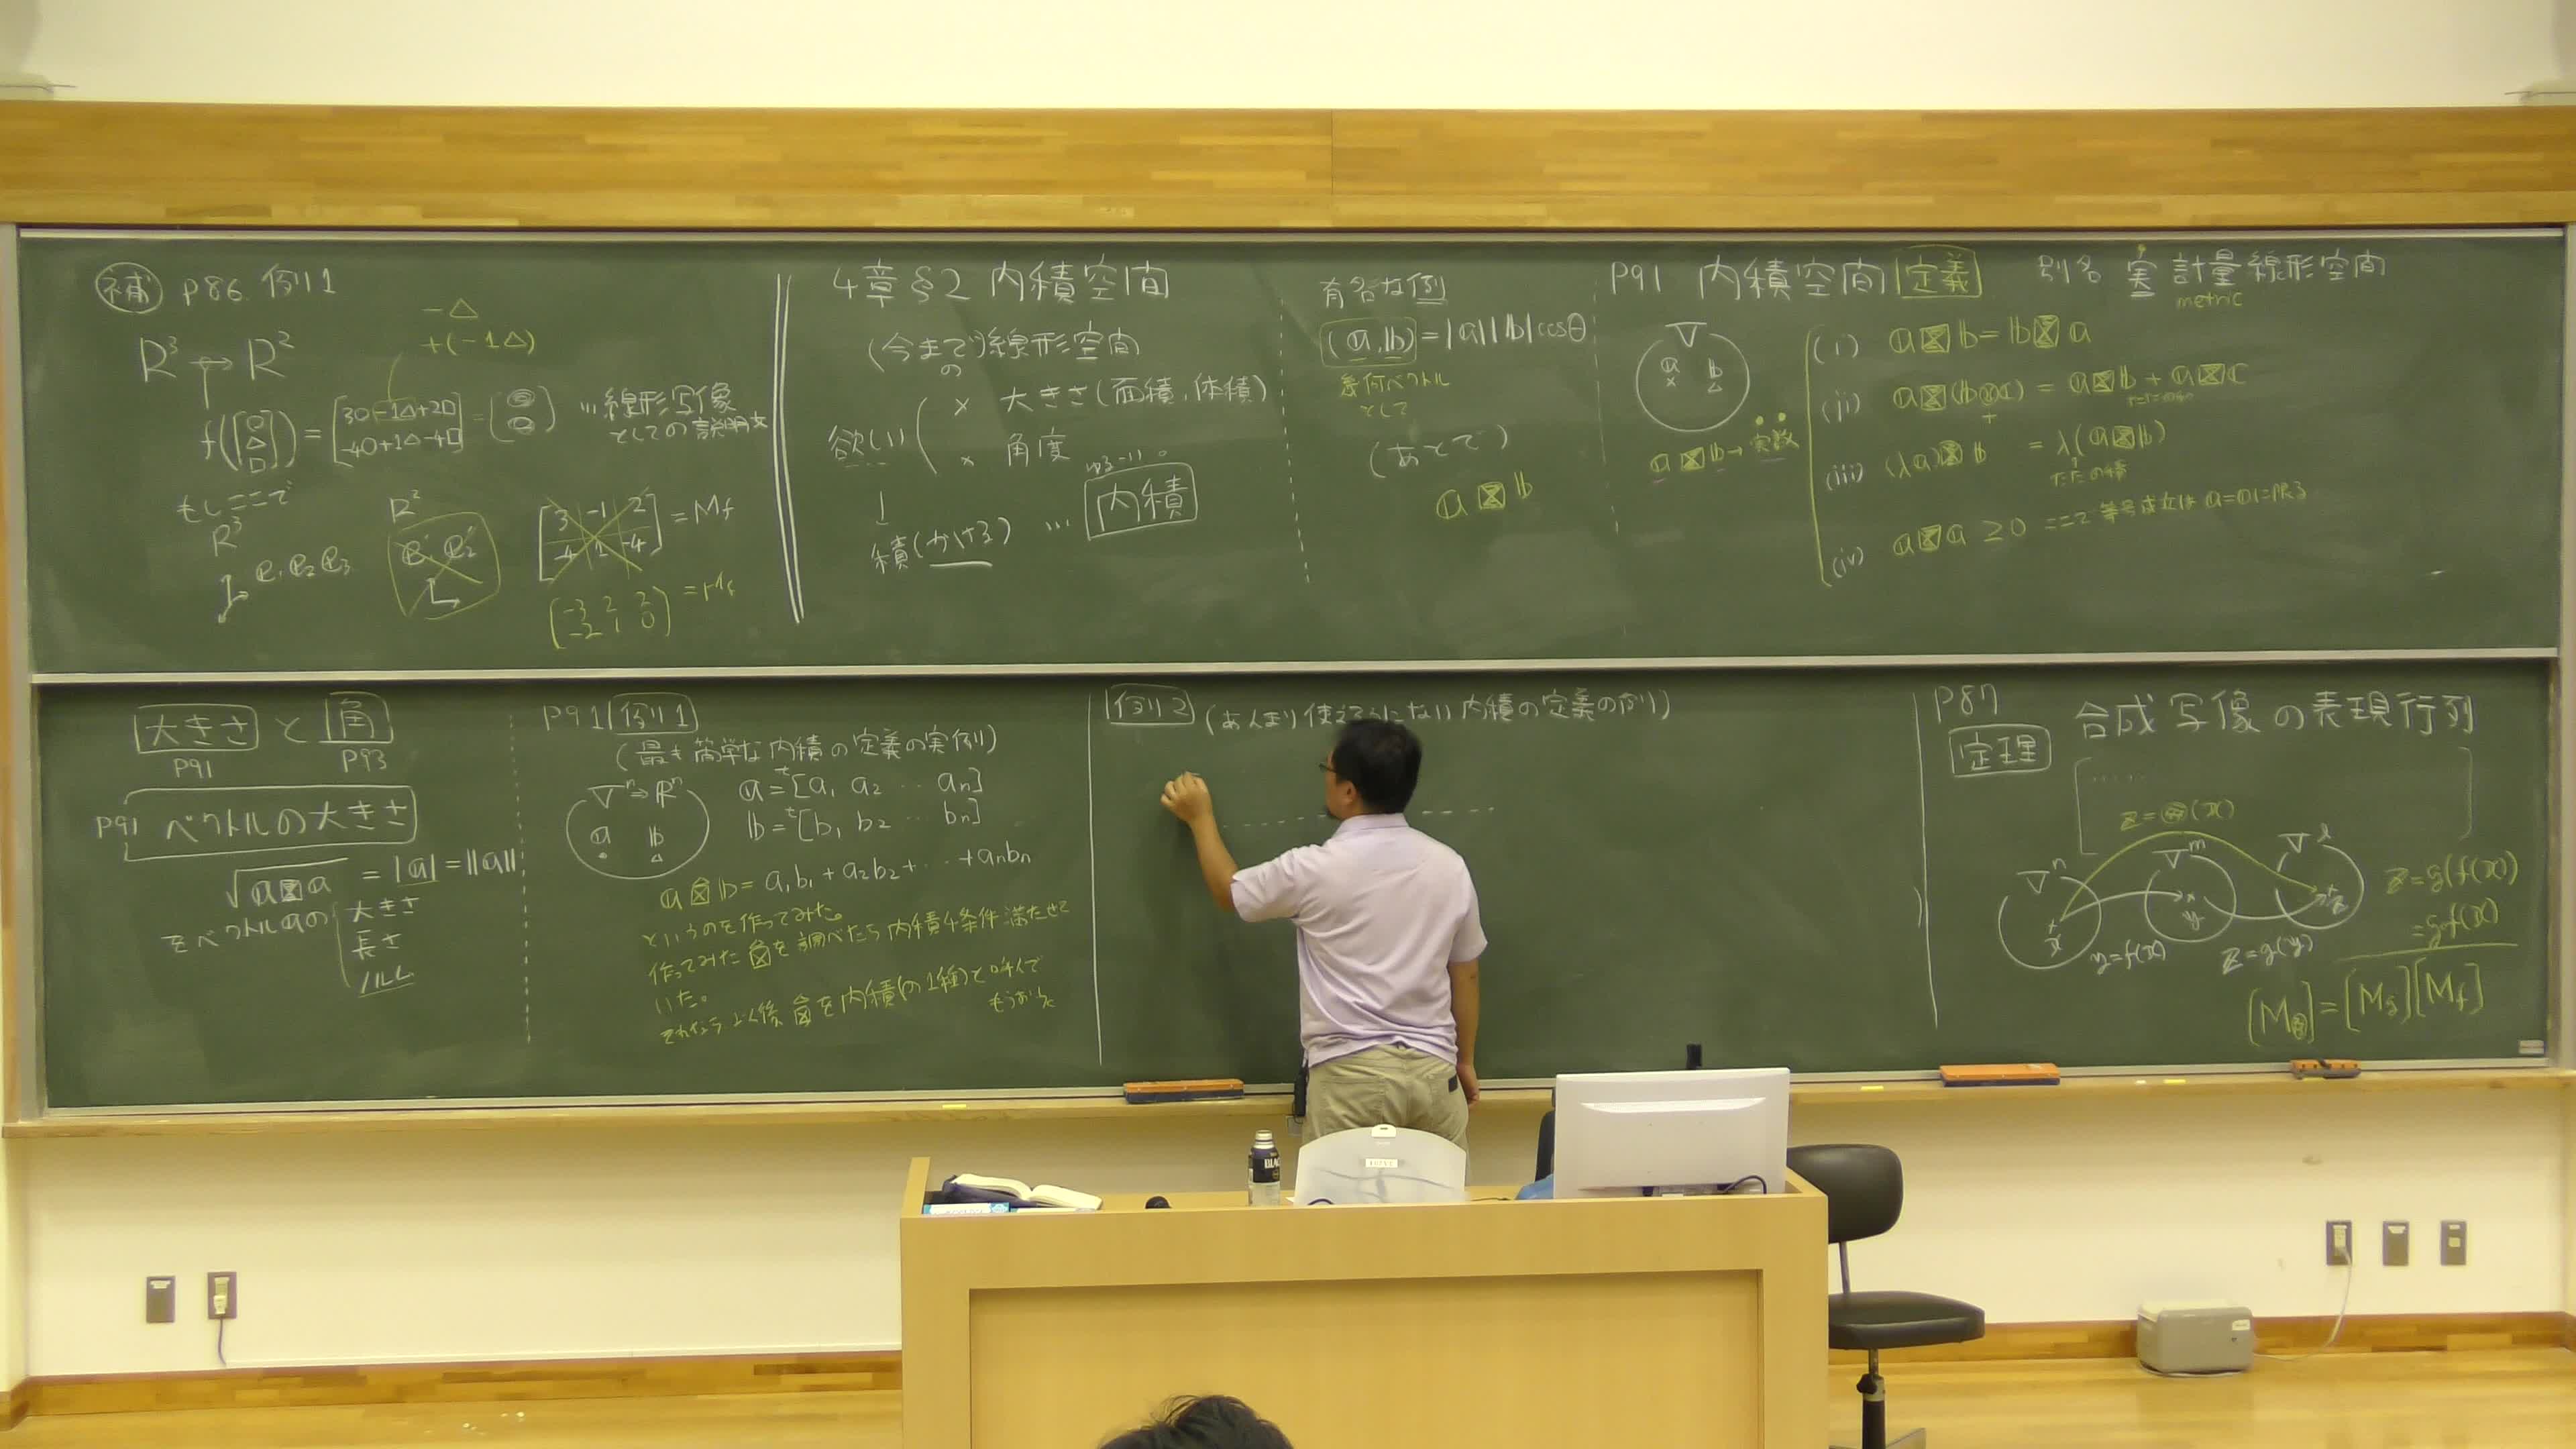 補 P86 例1
R³ → R²
-△
+(-1△)
f([○ △ □]) = [3○-1△+2□ -4○+1△-4□] = … 線形写像
としての説明文
もしここで
R³
e₁ e₂ e₃
R²
e₁' e₂'
[3 -1 2
-4 1 -4] = Mf
(-3 2 2
-2 1 0) = Mf
4章 §2 内積空間
(今まで)線形空間
の
欲しい
× 大きさ(面積,体積)
× 角度
↓
積(かける) … 内積
有名な例
(a,b) = |a||b|cosθ
幾何ベクトル
として
(あとで)
a⊠b
P91 内積空間 定義 別名 実計量線形空間
metric
V
a b
a⊠b→実数
(i) a⊠b=b⊠a
(ii) a⊠(b⊗c) = a⊠b + a⊠c
+
ただの和
(iii) (λa)⊠b = λ(a⊠b)
ただの積
(iv) a⊠a ≥ 0 ここで等号成立は a=0に限る
大きさ と 角
P91 P93
P91 ベクトルの大きさ
√a⊠a = |a| = ||a||
をベクトルaの
大きさ
長さ
ノルム
P91 例1
(最も簡単な内積の定義の実例)
Vⁿ ⇒ Rⁿ
a b
a = ᵗ[a₁ a₂ ‥ aₙ]
b = ᵗ[b₁ b₂ ‥ bₙ]
a⊠b = a₁b₁ + a₂b₂ + ‥ + aₙbₙ
というのを作ってみた。
作ってみた⊠を調べたら内積4条件満たせて
いた。
それなら以後⊠を内積(の1種)と呼んで
もうおk
例2 (あんまり使 ない内積の定義の例)
P87
定理
合成写像の表現行列
……
z=⊗(x)
Vⁿ Vᵐ Vˡ
x y z
y=f(x) z=g(y)
z=g(f(x))
=gf(x)
[M⊗]=[Mg][Mf]